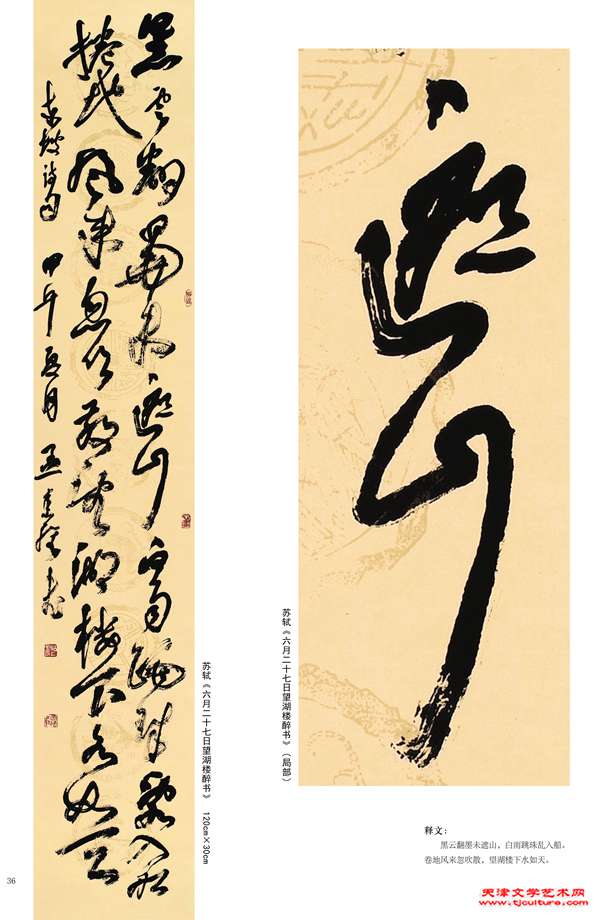 黑云翻墨未遮山白雨跳珠乱入船
捲地风来忽吹散望湖楼下水如天
东坡诗句 甲午夏月 王 书
苏轼《六月二十七日望湖楼醉书》 120cm×30cm
遮山
苏轼《六月二十七日望湖楼醉书》（局部）
释文：
黑云翻墨未遮山，白雨跳珠乱入船。
卷地风来忽吹散，望湖楼下水如天。
36
天津文学艺术网
www.tjculture.com